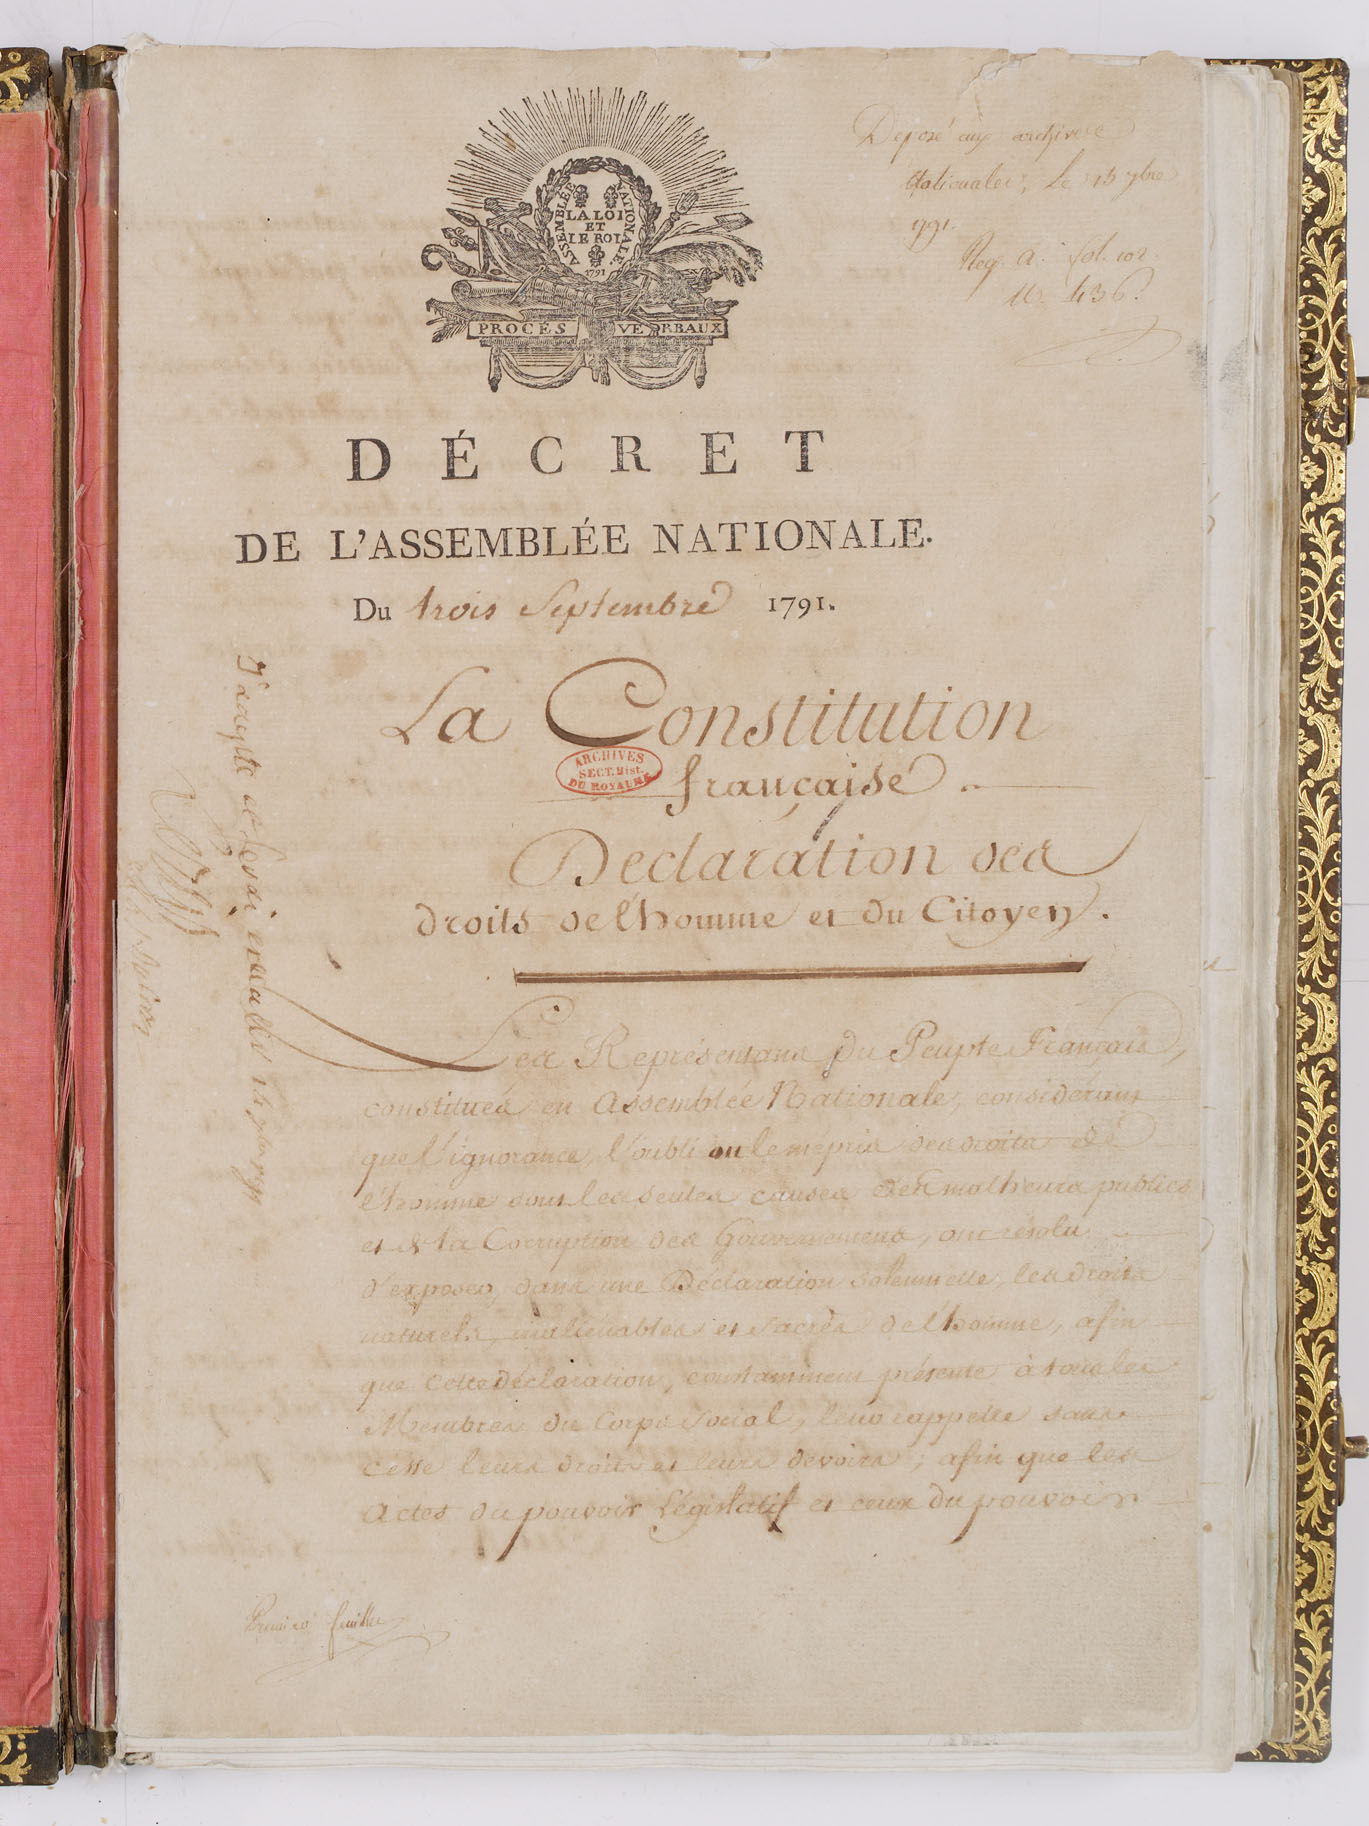 ASSEMBLÉE NATIONALE.
LA LOI
ET
LE ROI
1791
PROCÉS VERBAUX
Deposé aux archives
Nationales, Le 15 7bre
1791.
Reg. A. fol. 102.
N. 436.
DÉCRET
DE L'ASSEMBLÉE NATIONALE.
Du trois Septembre 1791.
La Constitution
ARCHIVES
SECT. Hist.
DU ROYAUME
française.
Declaration des
droits de l'homme et du Citoyen.
Les Représentans du Peuple Français,
constitués en Assemblée Nationale, considérant
que l'ignorance, l'oubli ou le mépris des droits de
l'homme sont les seules causes des malheurs publics
et de la Corruption des Gouvernemens, ont résolu
d'exposer, dans une Déclaration solemnelle, les droits
naturels, inaliénables et sacrés de l'homme, afin
que cette déclaration, constamment présente à tous les
Membres du Corps social, leur rappelle sans
cesse leurs droits et leurs devoirs; afin que les
Actes du pouvoir Législatif et ceux du pouvoir
J'accepte et ferai exécuter 14 7bre 1791
Louis
Premier feuillet